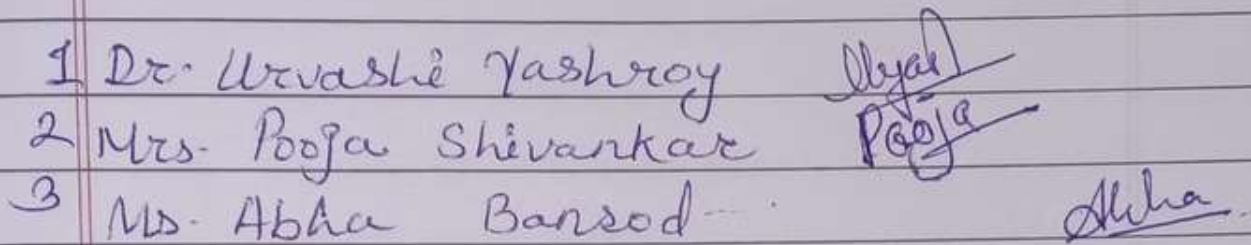 1 Dr. Urvashi Yashroy
2 Mrs. Pooja Shivankar Pooja
3 Ms. Abha Bansod Abha